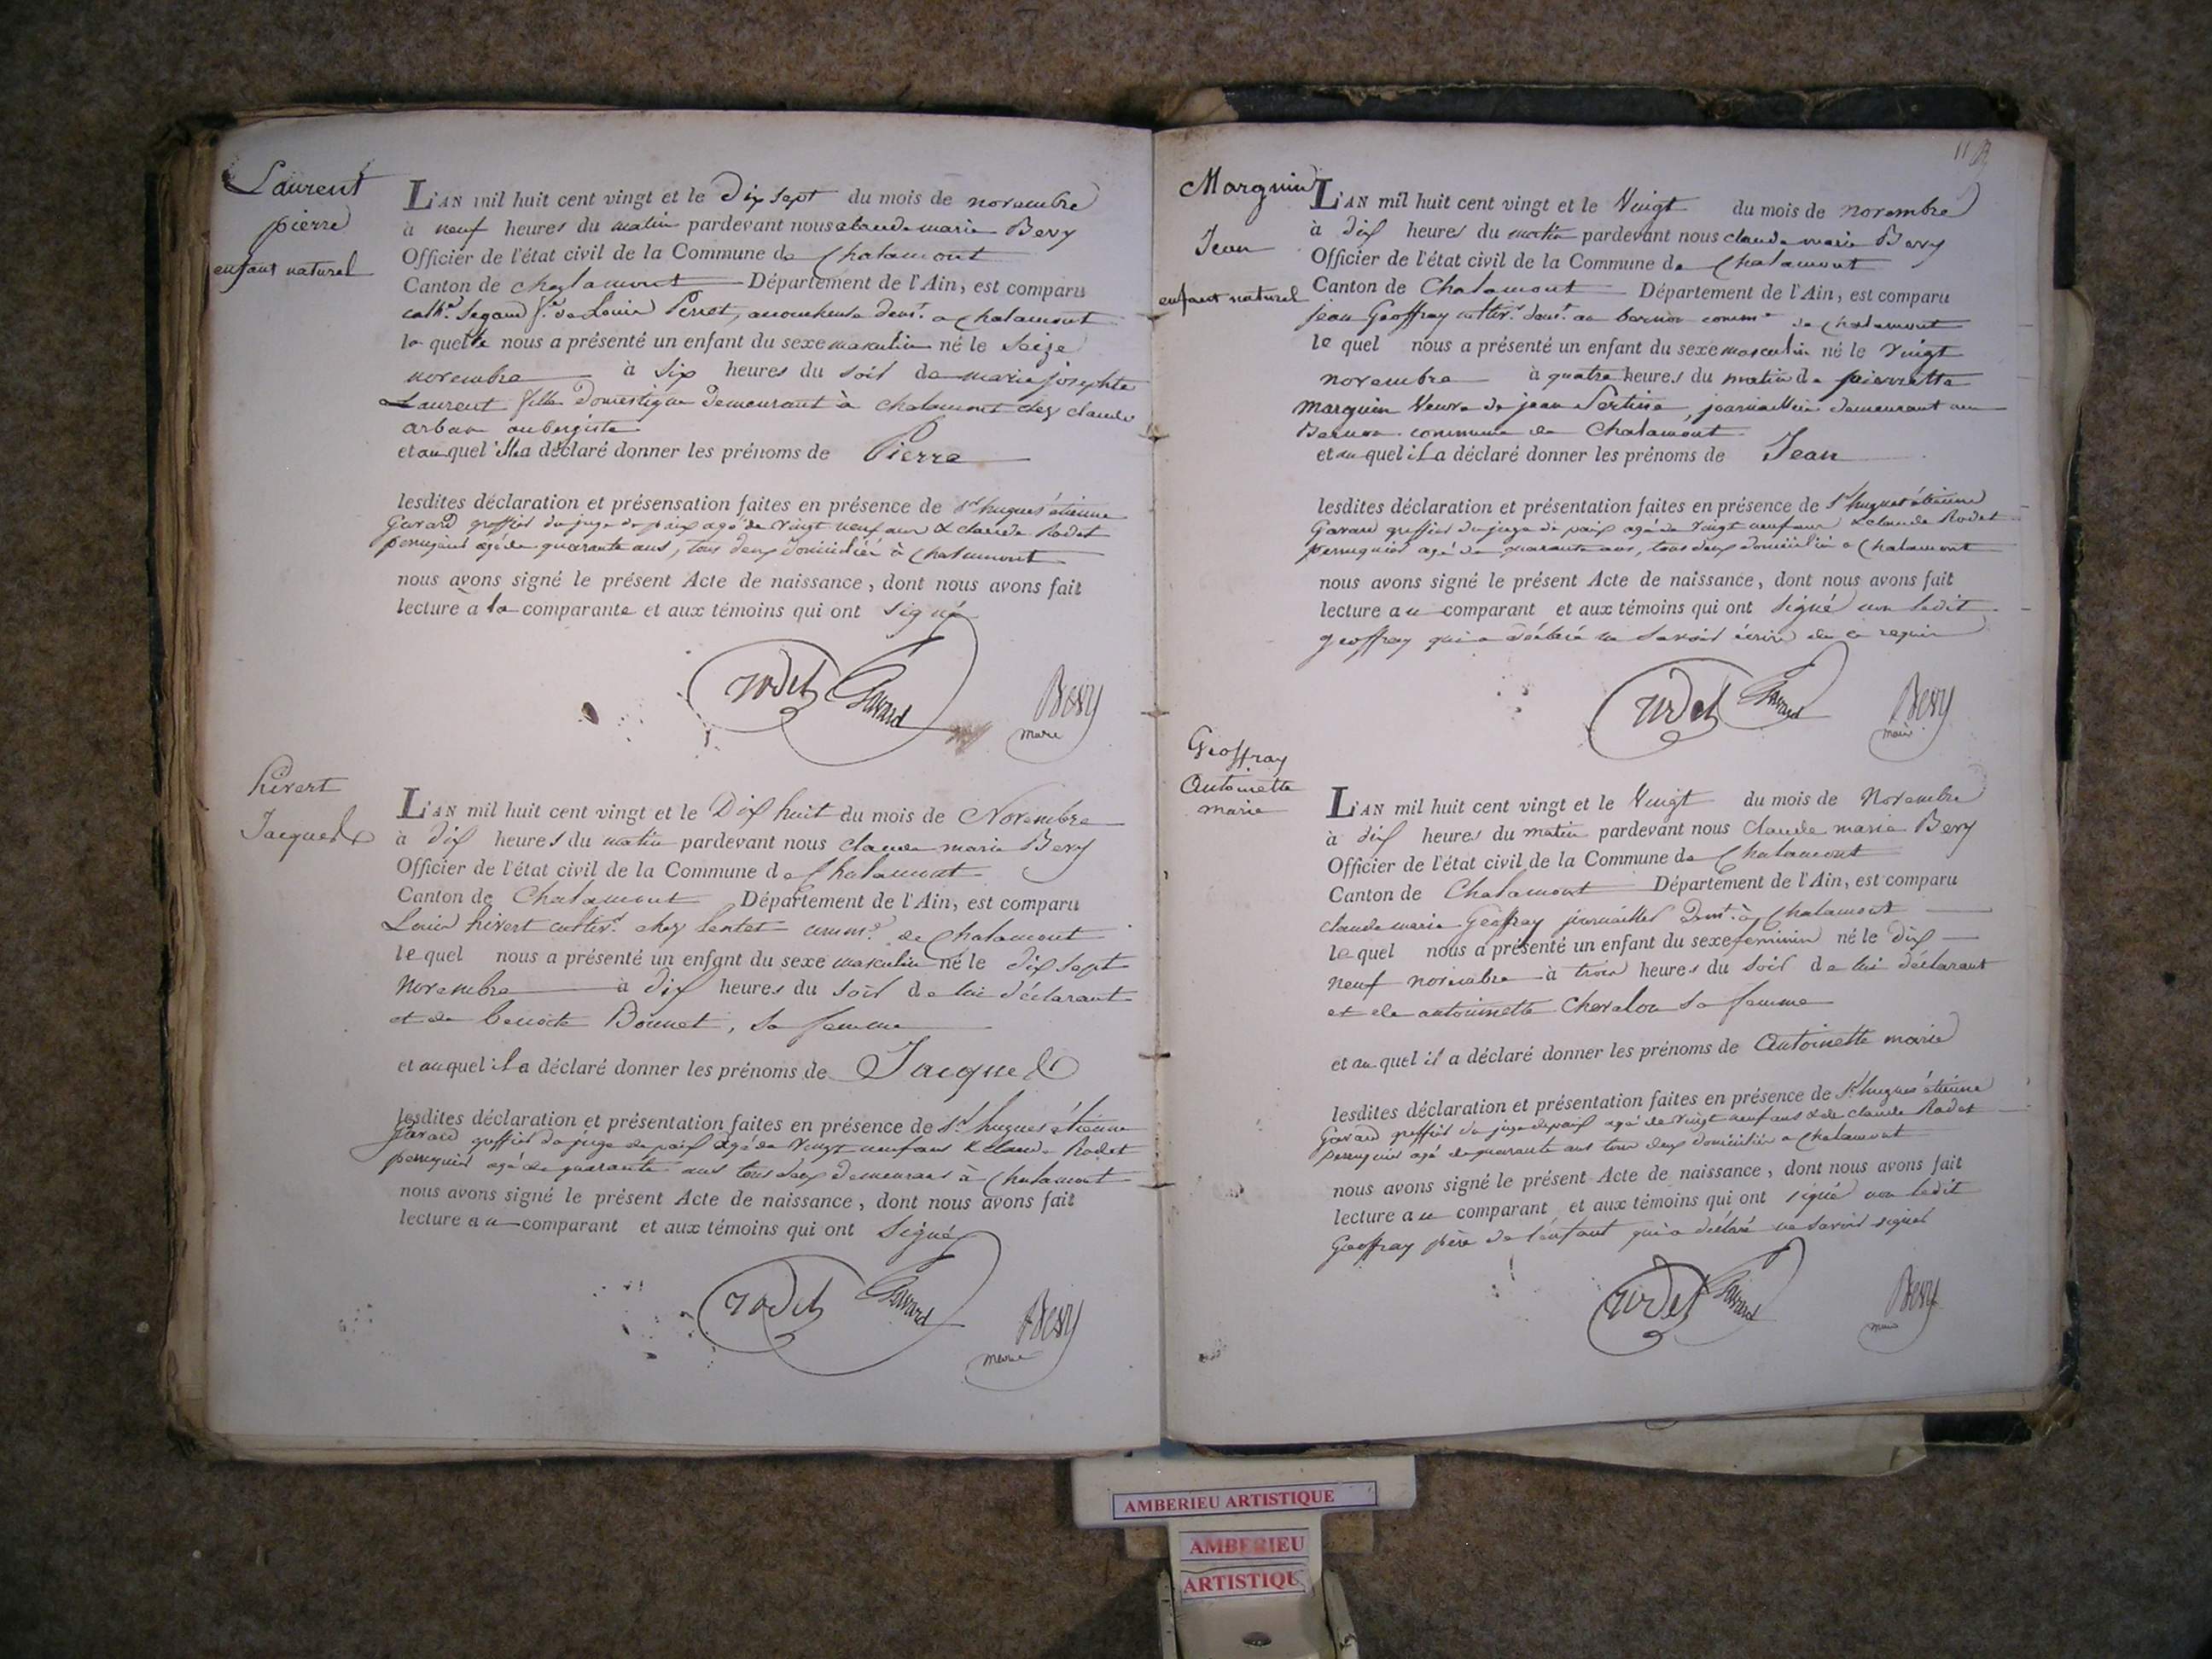 Laurent
pierre
enfant naturel
L'AN mil huit cent vingt et le Dix sept du mois de novembre
à neuf heures du matin pardevant nous claude marie Bevy
Officier de l'état civil de la Commune de Chalamont
Canton de chalamont Département de l'Ain, est comparu
cathe. Segaud fe. de Louis Perret, accoucheuse demt. a Chalamont
la quelle nous a présenté un enfant du sexe masculin né le Seize
novembre à six heures du soir de marie josephte
Laurent fille domestique demeurant à chalamont chez claude
arban aubergiste
et auquel illa déclaré donner les prénoms de Pierre
lesdites déclaration et présensation faites en présence de Sr hugues étienne
Gavard greffier du juge de paix agé de vingt neuf ans & claude Rodet
perruquier agé de quarante ans, tous deux domiciliés à Chalamont
nous avons signé le présent Acte de naissance, dont nous avons fait
lecture a la comparante et aux témoins qui ont signé
rodet Gavard Bevy
maire
hivert
Jacques
L'AN mil huit cent vingt et le Dix huit du mois de Novembre
à dix heures du matin pardevant nous claude marie Bevy
Officier de l'état civil de la Commune de Chalamont
Canton de Chalamont Département de l'Ain, est comparu
Louis hivert cultivr. chez comme. de Chalamont
le quel nous a présenté un enfant du sexe masculin né le dix sept
Novembre à dix heures du soir de lui déclarant
et de benoite Bonnet, sa femme
et auquel il a déclaré donner les prénoms de Jacques
lesdites déclaration et présentation faites en présence de Sr hugues étienne
Gavard greffier du juge de paix agé de vingt neuf ans & claude Rodet
perruquier agé de quarante ans tous deux demeurans à Chalamont
nous avons signé le présent Acte de naissance, dont nous avons fait
lecture a u comparant et aux témoins qui ont signé
rodet Gavard Bevy
maire
Marguin
Jean
enfant naturel
L'AN mil huit cent vingt et le Vingt du mois de novembre
à dix heures du matin pardevant nous claude marie Bevy
Officier de l'état civil de la Commune de Chalamont
Canton de Chalamont Département de l'Ain, est comparu
jean Geoffray cultivr. demt. au bernon comme de chalamont
le quel nous a présenté un enfant du sexe masculin né le vingt
novembre à quatre heures du matin de pierrette
marguin Veuve de jean Sertine, journalliere demeurant au
Bernon commune de Chalamont
et au quel il a déclaré donner les prénoms de Jean
lesdites déclaration et présentation faites en présence de Sr hugues étienne
Gavard greffier du juge de paix agé de vingt neuf ans & claude Rodet
perruquier agé de quarante ans, tous deux domiciliés a Chalamont
nous avons signé le présent Acte de naissance, dont nous avons fait
lecture a u comparant et aux témoins qui ont signé non ledit
geoffray qui a déclaré ne savoir écrire de ce requis
rodet Gavard Bevy
maire
Geoffray
Antoinette
marie
L'AN mil huit cent vingt et le Vingt du mois de Novembre
à dix heures du matin pardevant nous Claude marie Bevy
Officier de l'état civil de la Commune de Chalamont
Canton de Chalamont Département de l'Ain, est comparu
claude marie Geoffray journallier demt. à Chalamont
le quel nous a présenté un enfant du sexe feminin né le dix
neuf novembre à trois heures du soir de lui déclarant
et de antoinette Chevalon sa femme
et au quel il a déclaré donner les prénoms de Antoinette marie
lesdites déclaration et présentation faites en présence de Sr hugues étienne
Gavard greffier du juge de paix agé de vingt neuf ans & de claude Rodet
perruquier agé de quarante ans tous deux domiciliés a Chalamont
nous avons signé le présent Acte de naissance, dont nous avons fait
lecture a u comparant et aux témoins qui ont signé non ledit
Geoffray père de l'enfant qui a déclaré ne savoir signer
rodet Gavard Bevy
maire
AMBERIEU ARTISTIQUE
AMBERIEU
ARTISTIQUE